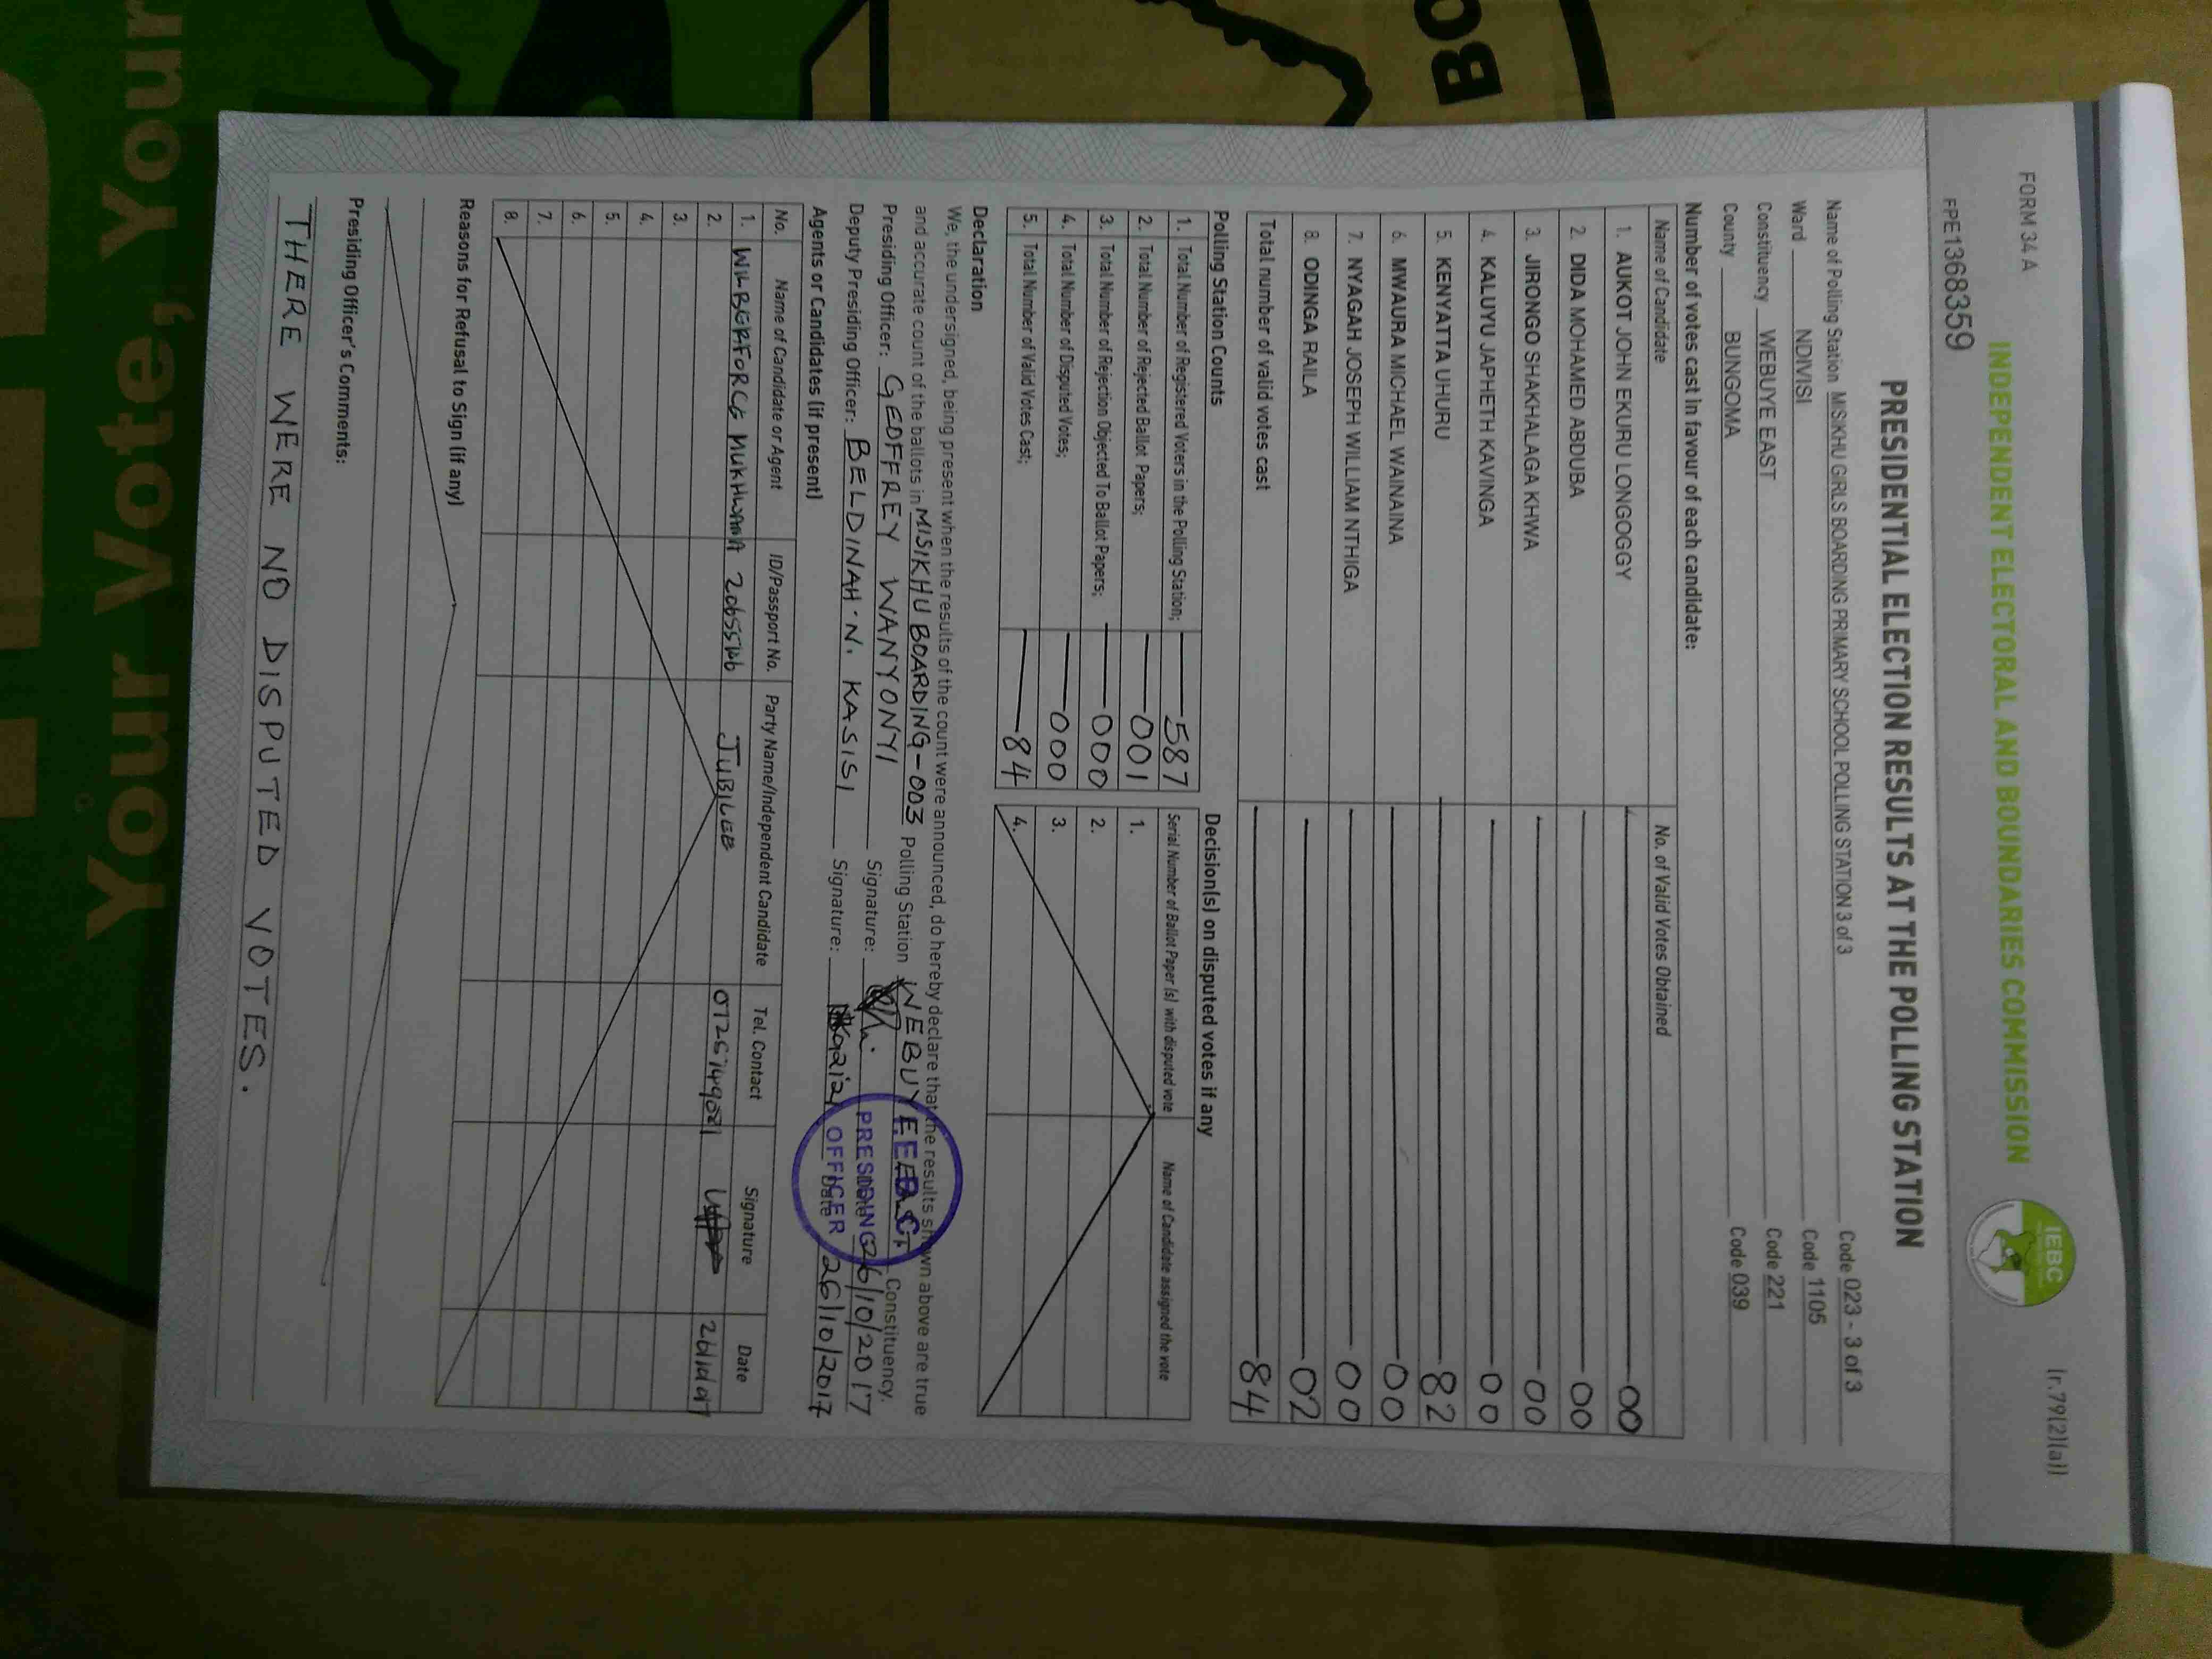 FORM 34 A
(r.79(2)(a))
INDEPENDENT ELECTORAL AND BOUNDARIES COMMISSION
IEBC
FPE1368359
PRESIDENTIAL ELECTION RESULTS AT THE POLLING STATION
Name of Polling Station MISIKHU GIRLS BOARDING PRIMARY SCHOOL POLLING STATION 3 of 3 Code 023 - 3 of 3
Ward NDIVISI Code 1105
Constituency WEBUYE EAST Code 221
County BUNGOMA Code 039
Number of votes cast in favour of each candidate:
Name of Candidate No. of Valid Votes Obtained
1. AUKOT JOHN EKURU LONGOGGY 00
2. DIDA MOHAMED ABDUBA 00
3. JIRONGO SHAKHALAGA KHWA 00
4. KALUYU JAPHETH KAVINGA 00
5. KENYATTA UHURU 82
6. MWAURA MICHAEL WAINAINA 00
7. NYAGAH JOSEPH WILLIAM NTHIGA 00
8. ODINGA RAILA 02
Total number of valid votes cast 84
Polling Station Counts
1. Total Number of Registered Voters in the Polling Station; 587
2. Total Number of Rejected Ballot Papers; 001
3. Total Number of Rejection Objected To Ballot Papers; 000
4. Total Number of Disputed Votes; 000
5. Total Number of Valid Votes Cast; 84
Decision(s) on disputed votes if any
Serial Number of Ballot Paper (s) with disputed vote Name of Candidate assigned the vote
1.
2.
3.
4.
Declaration
We, the undersigned, being present when the results of the count were announced, do hereby declare that the results shown above are true
and accurate count of the ballots in MISIKHU BOARDING-003 Polling Station WEBUYE EAST Constituency.
Presiding Officer: GEOFFREY WANYONYI Signature: Date 26/10/2017
Deputy Presiding Officer: BELDINAH N. KASISI Signature: Date 26/10/2017
PRESIDING
OFFICER
Agents or Candidates (if present)
No. Name of Candidate or Agent ID/Passport No. Party Name/Independent Candidate Tel. Contact Signature Date
1. WILBERFORCE JUBILEE
2.
3.
4.
5.
6.
7.
8.
Reasons for Refusal to Sign (if any)
Presiding Officer's Comments:
THERE WERE NO DISPUTED VOTES.
BO
Your Vote, Your